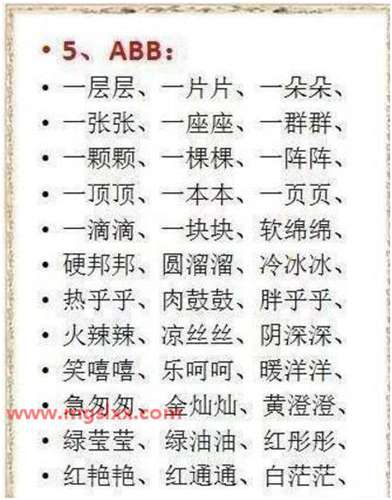 5、ABB：
一层层、一片片、一朵朵、
一张张、一座座、一群群、
一颗颗、一棵棵、一阵阵、
一顶顶、一本本、一页页、
一滴滴、一块块、软绵绵、
硬邦邦、圆溜溜、冷冰冰、
热乎乎、肉鼓鼓、胖乎乎、
火辣辣、凉丝丝、阴深深、
笑嘻嘻、乐呵呵、暖洋洋、
急匆匆、金灿灿、黄澄澄、
www.mgslxx.com
绿莹莹、绿油油、红彤彤、
红艳艳、红通通、白茫茫、